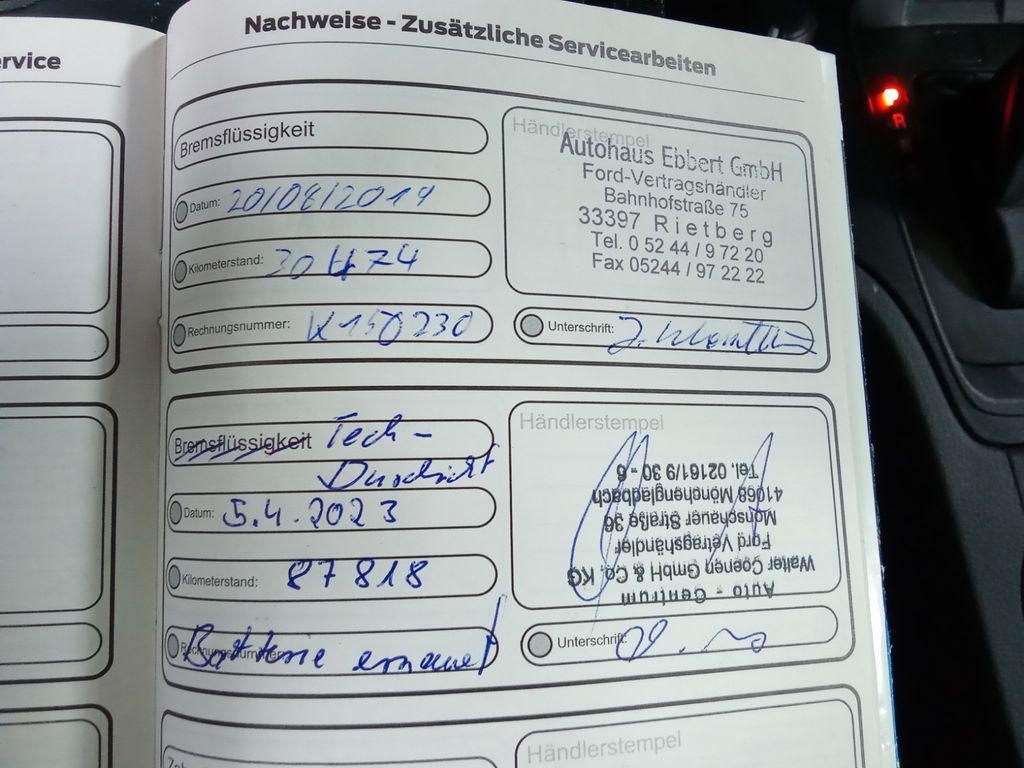 rvice
Nachweise - Zusätzliche Servicearbeiten
Bremsflüssigkeit
Datum: 20/08/2019
Kilometerstand: 30474
Rechnungsnummer: K150230
Händlerstempel
Autohaus Ebbert GmbH
Ford-Vertragshändler
Bahnhofstraße 75
33397 Rietberg
Tel. 0 52 44 / 9 72 20
Fax 05244 / 97 22 22
Unterschrift:
Bremsflüssigkeit Tech-
Durchsicht
Datum: 5.4.2023
Kilometerstand: 87818
Rechnungsnummer: Batterie erneuert
Händlerstempel
Auto - Centrum
Walter Coenen GmbH & Co. KG
Ford Vetragshändler
Monschauer Straße 36
41068 Mönchengladbach
Tel. 02161/9 30 - 6
Unterschrift:
Händlerstempel
R